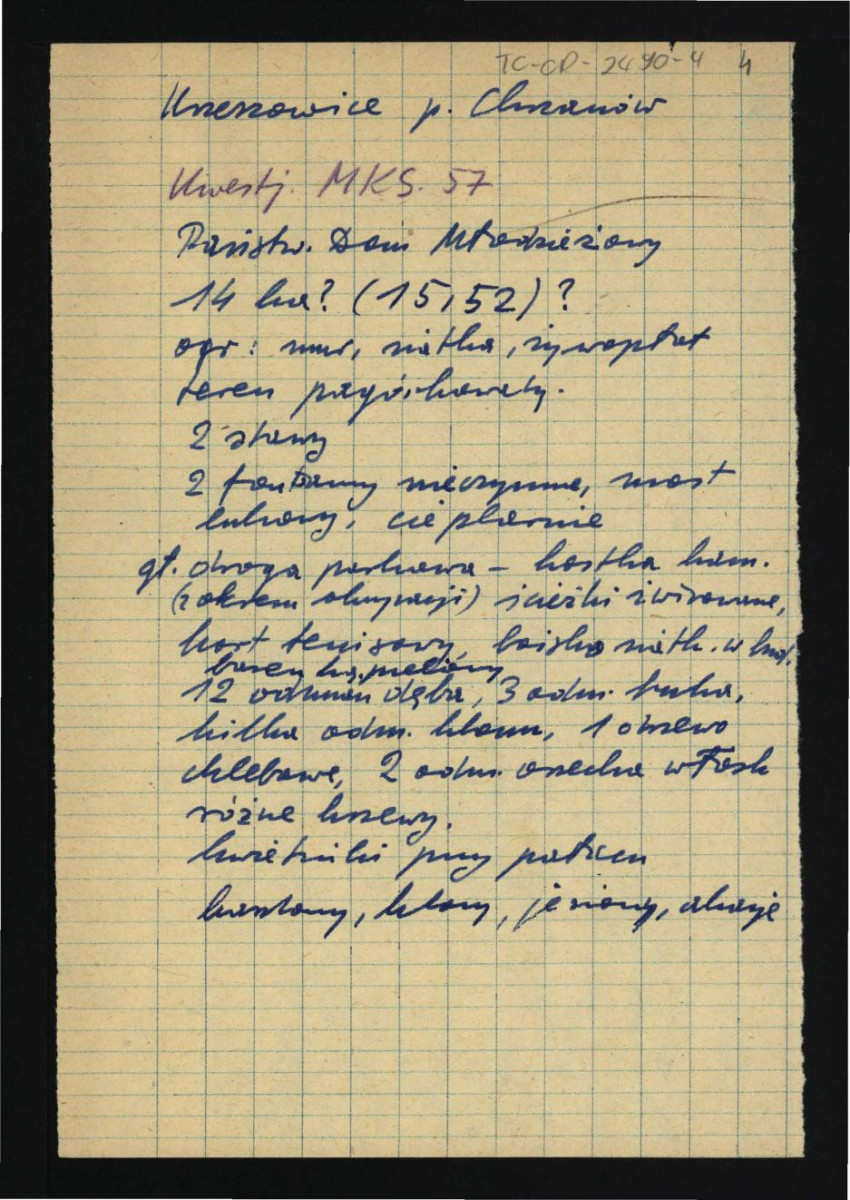 TC-CD-2490-4 4
Krzeszowice p. Chrzanów
Kwestj. MKS. 57
Państw. Dom Młodzieżowy
14 ha? (15,52)?
ogr: mur, siatka, żywopłot
teren pagórkowaty.
2 stawy
2 fontanny nieczynne, most
łukowy, cieplarnie
gł. droga parkowa – kostka kam.
(z okresu okupacji) ścieżki żwirowane,
kort tenisowy, boisko siatk. w bud.
basen kąpielowy
12 odmian dęba, 3 odm. buka,
kilka odm. klonu, 1 drzewo
chlebowe, 2 odm. orzecha włosk
różne krzewy.
kwietniki przy pałacu
kasztany, klony, jesiony, akacje